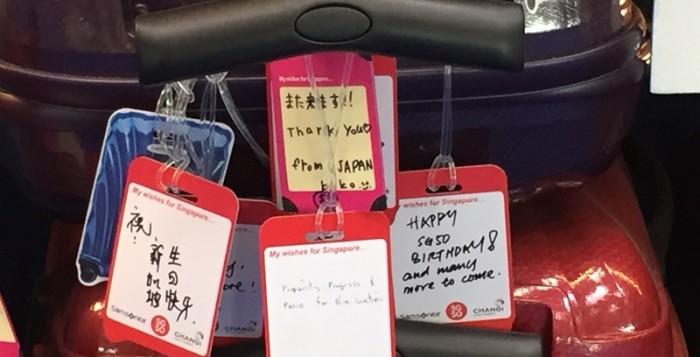 My wishes for Singapore...
祝!
新加坡
生日快乐.
Samsonite SG50 CHANGI
My wishes for Singapore...
また来ます!!
Thank You♡
from JAPAN
My wishes for Singapore...
Prosperity, Progress &
Peace for the nation
wishes for Singapore...
HAPPY
SG50
BIRTHDAY!
and many
more to come.
Samsonite SG50 CHANGI